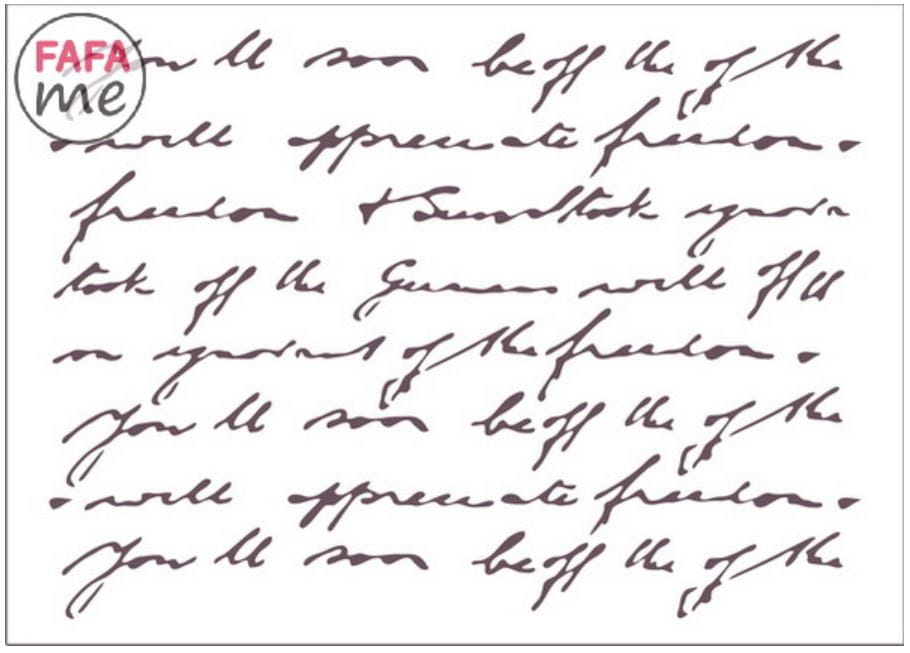 FAFA
me
You ll soon be off the of the
. will appreciate freedom .
freedom & took
took off the Germans will off ll
on ignorant of the freedom .
You ll soon be off the of the
. will appreciate freedom .
You ll soon be off the of the